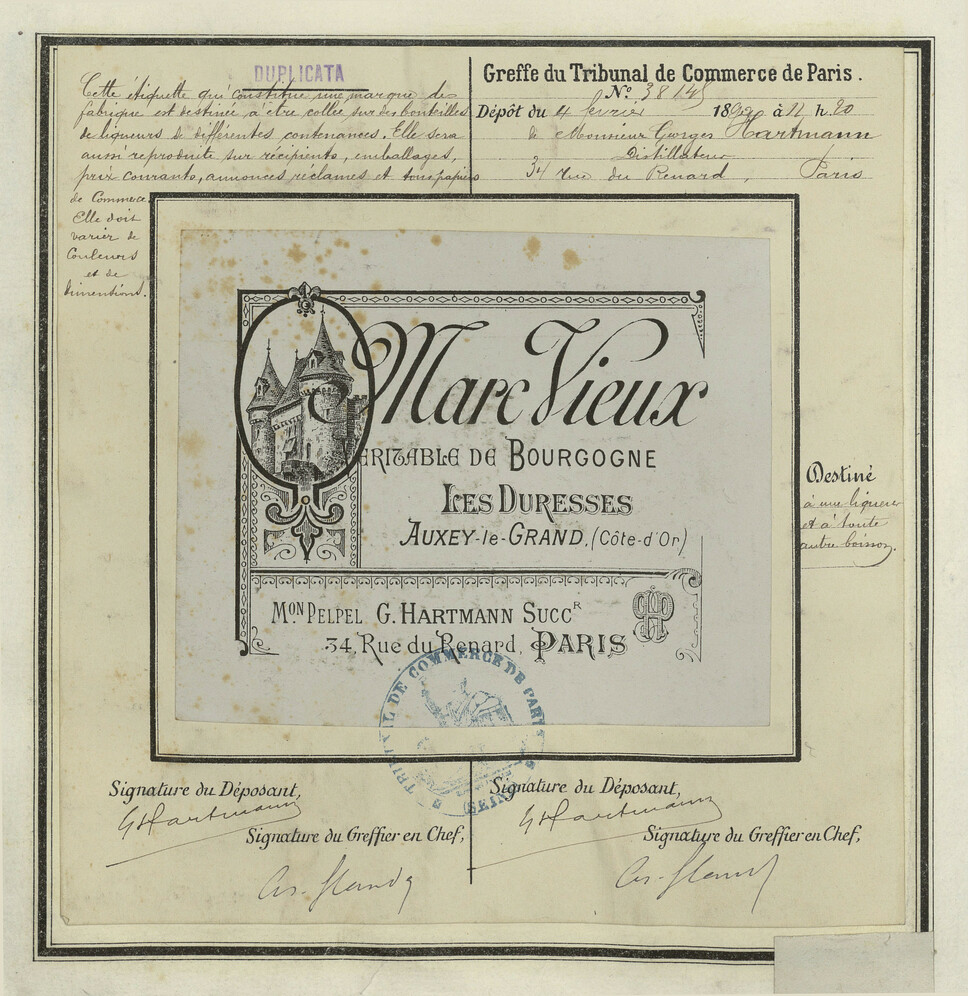 DUPLICATA
Cette étiquette qui constitue une marque de
fabrique est destinée à être collée sur des bouteilles
de liqueurs de différentes contenances. Elle sera
aussi reproduite sur récipients, emballages,
prix courants, annonces réclames et tous papiers
de Commerce.
Elle doit
varier de
Couleurs
et de
dimentions.
Greffe du Tribunal de Commerce de Paris.
N° 38145
Dépôt du 4 février 18 à 11 h. 20
de Monsieur Georges Hartmann
Distillateur
34 rue du Renard, Paris
Marc Vieux
VERITABLE DE BOURGOGNE
LES DURESSES
AUXEY-le-GRAND, (Côte-d'Or)
MON PELPEL G. HARTMANN SUCCR
34, Rue du Renard, PARIS
Destiné
à une liqueur
et à toute
autre boisson.
TRIBUNAL DE COMMERCE DE PARIS
(SEINE)
Signature du Déposant,
GHartmann
Signature du Greffier en Chef,
Signature du Déposant,
GHartmann
Signature du Greffier en Chef,